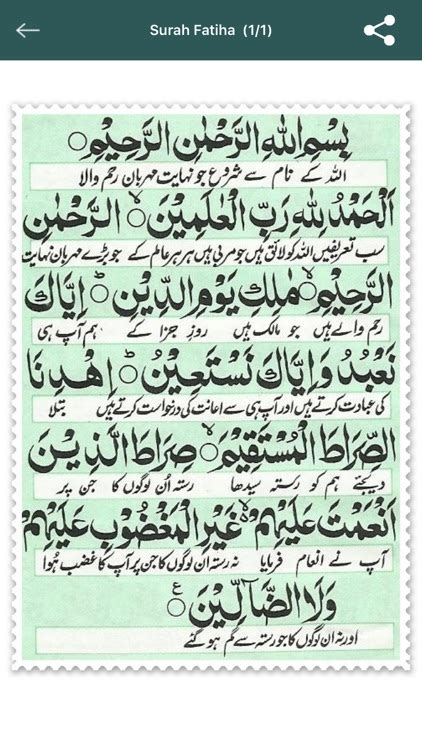 Surah Fatiha (1/1)
بِسْمِ اللهِ الرَّحْمٰنِ الرَّحِيْمِ ○
اللہ کے نام سے شروع جو نہایت مہربان رحم والا
اَلْحَمْدُ لِلّٰهِ رَبِّ الْعٰلَمِيْنَ ○ۙ الرَّحْمٰنِ
سب تعریفیں اللہ کو لائق ہیں جو مربی ہیں ہر ہر عالم کے جو بڑے مہربان نہایت
الرَّحِيْمِ ○ۙ مٰلِكِ يَوْمِ الدِّيْنِ ○ؕ اِيَّاكَ
رحم والے ہیں جو مالک ہیں روزِ جزا کے ہم آپ ہی
نَعْبُدُ وَاِيَّاكَ نَسْتَعِيْنُ ○ؕ اِهْدِنَا
کی عبادت کرتے ہیں اور آپ ہی سے اعانت کی درخواست کرتے ہیں بتلا
الصِّرَاطَ الْمُسْتَقِيْمَ ○ۙ صِرَاطَ الَّذِيْنَ
دیجئے ہم کو رستہ سیدھا رستہ اُن لوگوں کا جن پر
اَنْعَمْتَ عَلَيْهِمْ ○ۙ غَيْرِ الْمَغْضُوْبِ عَلَيْهِمْ
آپ نے انعام فرمایا نہ رستہ ان لوگوں کا جن پر آپ کا غضب ہُوا
وَلَا الضَّآلِّيْنَ ○ع
اور نہ ان لوگوں کا جو رستہ سے گم ہو گئے